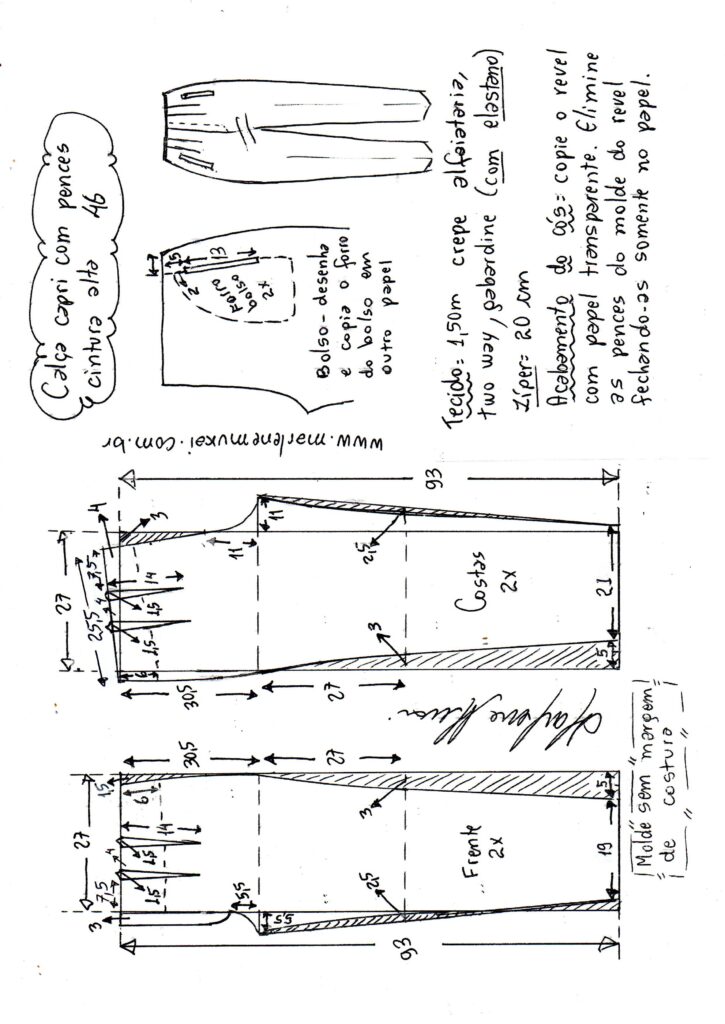 Calça capri com pences
cintura alta 46
www.marlenemukai.com.br
93
3
7,5
4
1,5
1,5
14
27
1,5
6
5,5
5,5
30,5
27
2,5
3
Frente
2x
19
5
30,5
27
6
25,5
27
4
7,5
1,5
1,5
14
4
3
11
11
3
2,5
Costas
2x
5
21
93
"Molde sem margem"
de costura
13
2x
Forro
bolso
2x
Bolso-desenha
e copia o forro
do bolso em
outro papel
Tecido= 1,50m crepe alfaiataria,
two way, gabardine (com elastano)
Zíper= 20 cm
Acabamento do cós= copie o revel
com papel transparente. Elimine
as pences do molde do revel
fechando-as somente no papel.